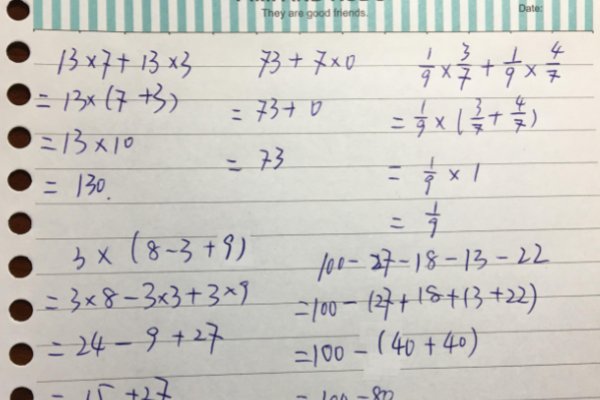 They are good friends.
Date:
13×7+13×3
=13×(7+3)
=13×10
=130.
73+7×0
=73+0
=73
1/9×3/7+1/9×4/7
=1/9×(3/7+4/7)
=1/9×1
=1/9
3×(8-3+9)
=3×8-3×3+3×9
=24-9+27
=15+27
100-27-18-13-22
=100-(27+18+13+22)
=100-(40+40)
=100-80